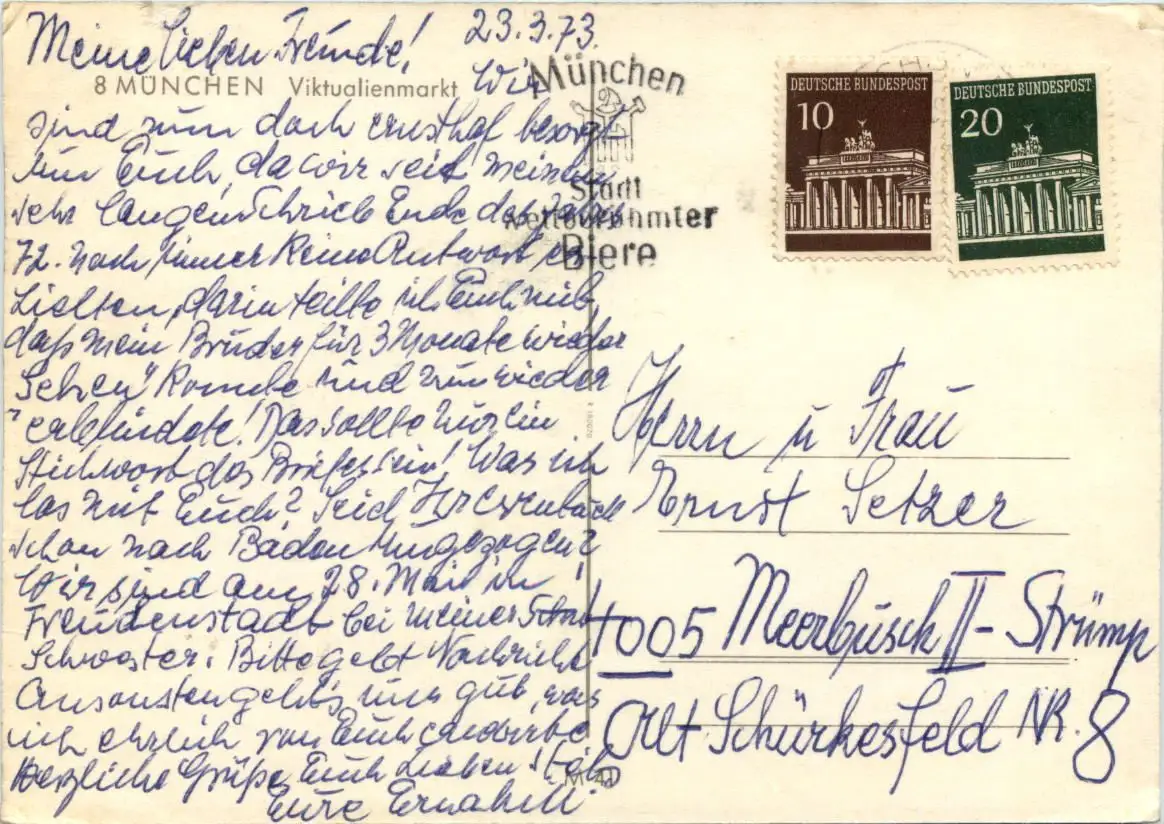 Meine lieben Freunde! 23.3.73.
8 MÜNCHEN Viktualienmarkt
Wir
sind nun doch ernsthaf besorgt
um Euch, da wir seit meinem
sehr langen Schrieb Ende des Jahres
72. noch immer keine Antwort er
hielten, darin teilte ich Euch mit,
daß mein Bruder für 3 Monate wieder
sehen" konnte und nun wieder
erblindete! Das sollte nur ein
Stichwort des Briefes sein! Was ist
los mit Euch? Seid Ihr
schon nach Baden umgezogen?
Wir sind am 28. Mai in
Freudenstadt bei meiner
Schwester. Bitte gebt Nachricht
Ansonsten geht's uns gut, was
ich ehrlich von Euch
Herzliche Grüße Euch Lieben!
Eure
München
Stadt
weltberühmter
Biere
DEUTSCHE BUNDESPOST
10
DEUTSCHE BUNDESPOST
20
Herrn u Frau
Ernst Setzer
4005 Meerbusch II - Strümp
Alt Schürkesfeld NR. 8